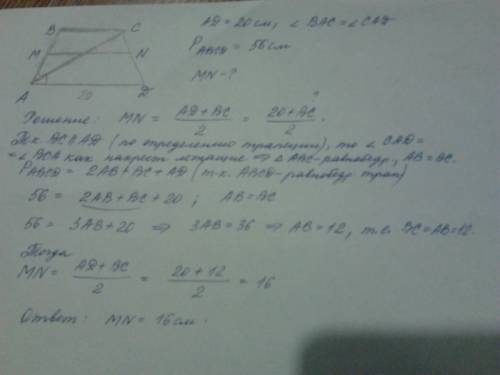 AD = 20 см, ∠ BAC = ∠ CAD
P ABCD = 56 см
MN - ?
B C
M N
A 20 D
Решение: MN = (AD + BC)/2 = (20 + BC)/2.
?
Т.к. BC ∥ AD (по определению трапеции), то ∠ CAD =
= ∠ BCA как накрест лежащие ⇒ △ ABC - равнобедр., AB = BC.
P ABCD = 2AB + BC + AD (т.к. ABCD - равнобедр. трап)
56 = 2AB + BC + 20 ; AB = BC
56 = 3AB + 20 ⇒ 3AB = 36 ⇒ AB = 12, т.е. BC = AB = 12.
Тогда
MN = (AD + BC)/2 = (20 + 12)/2 = 16
Ответ: MN = 16 см.